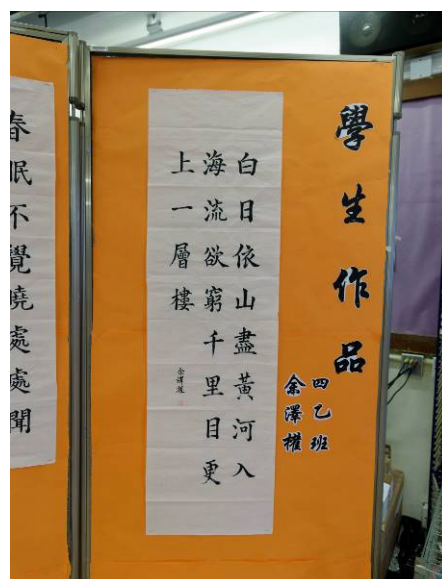 學生作品
四乙班
余澤權
白日依山盡黃河入
海流欲窮千里目更
上一層樓
余澤權
春眠不覺曉處處聞